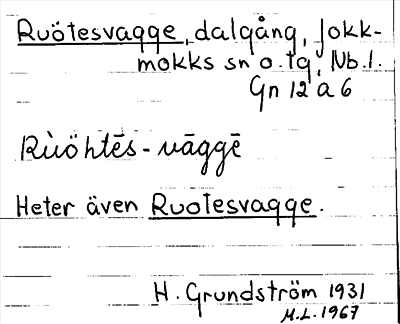 Ruötesvagge, dalgång, Jokk-
mokks sn o. tg, Nb. l.
Gn 12 a 6
Rùöhtēs-vāggē
Heter även Ruotesvagge.
H. Grundström 1931
M.L. 1967